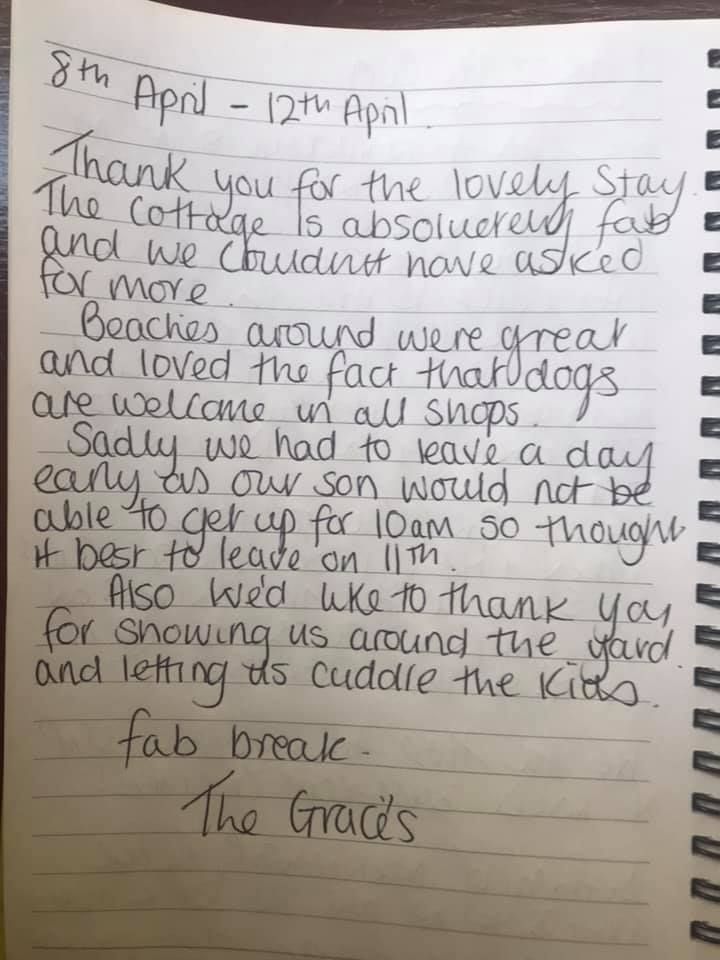 8th April - 12th April.
Thank you for the lovely stay.
The cottage is absolutely fab
and we couldn't have asked
for more.
Beaches around were great
and loved the fact that dogs
are welcome in all shops.
Sadly we had to leave a day
early as our son would not be
able to get up for 10am so thought
it best to leave on 11th.
Also we'd like to thank you
for showing us around the yard.
and letting us cuddle the kids.
fab break.
The Grace's